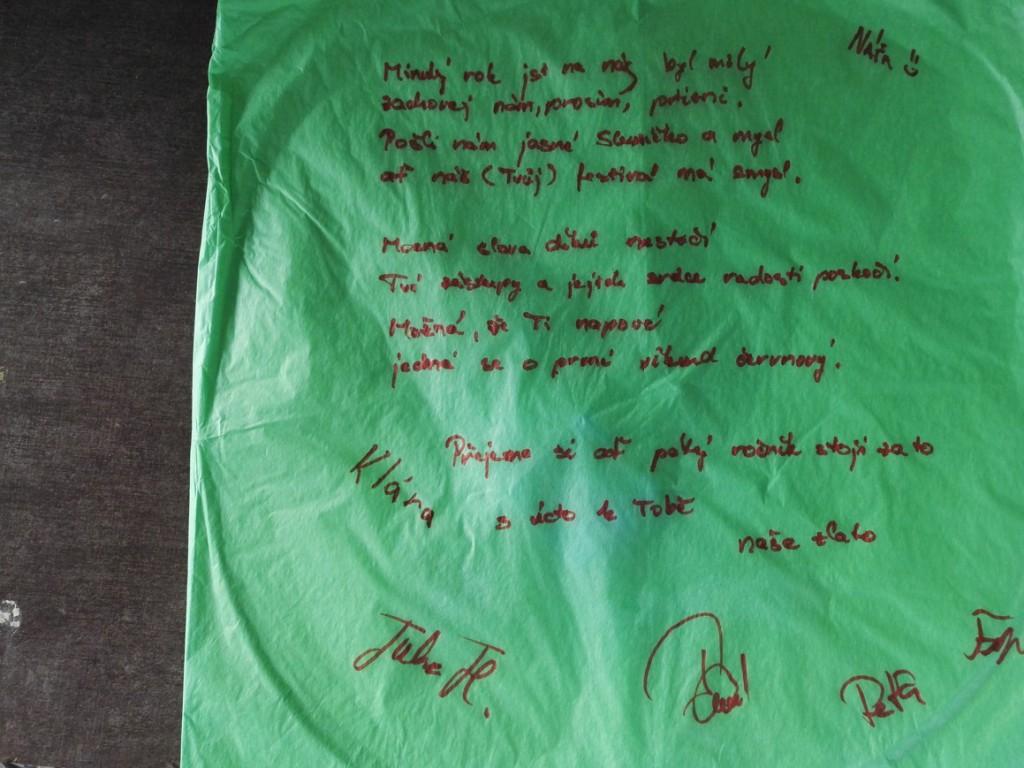 Naťa
Minulý rok jsi na nás byl milý
zachovej nám, prosím, přízeni.
Pošli nám jasné Sluníčko a mysl
ať náš (Tvůj) festival má smysl.
Možná slova díků nestačí
Tvé zástupy a jejich srdce radostí poskočí!
Možná, že Ti napoví
jedná se o první víkend červnový.
Přejeme si ať paký ročník stojí za to
Klára
s úcto k Tobě
naše zlato
Julia H.
Peťa